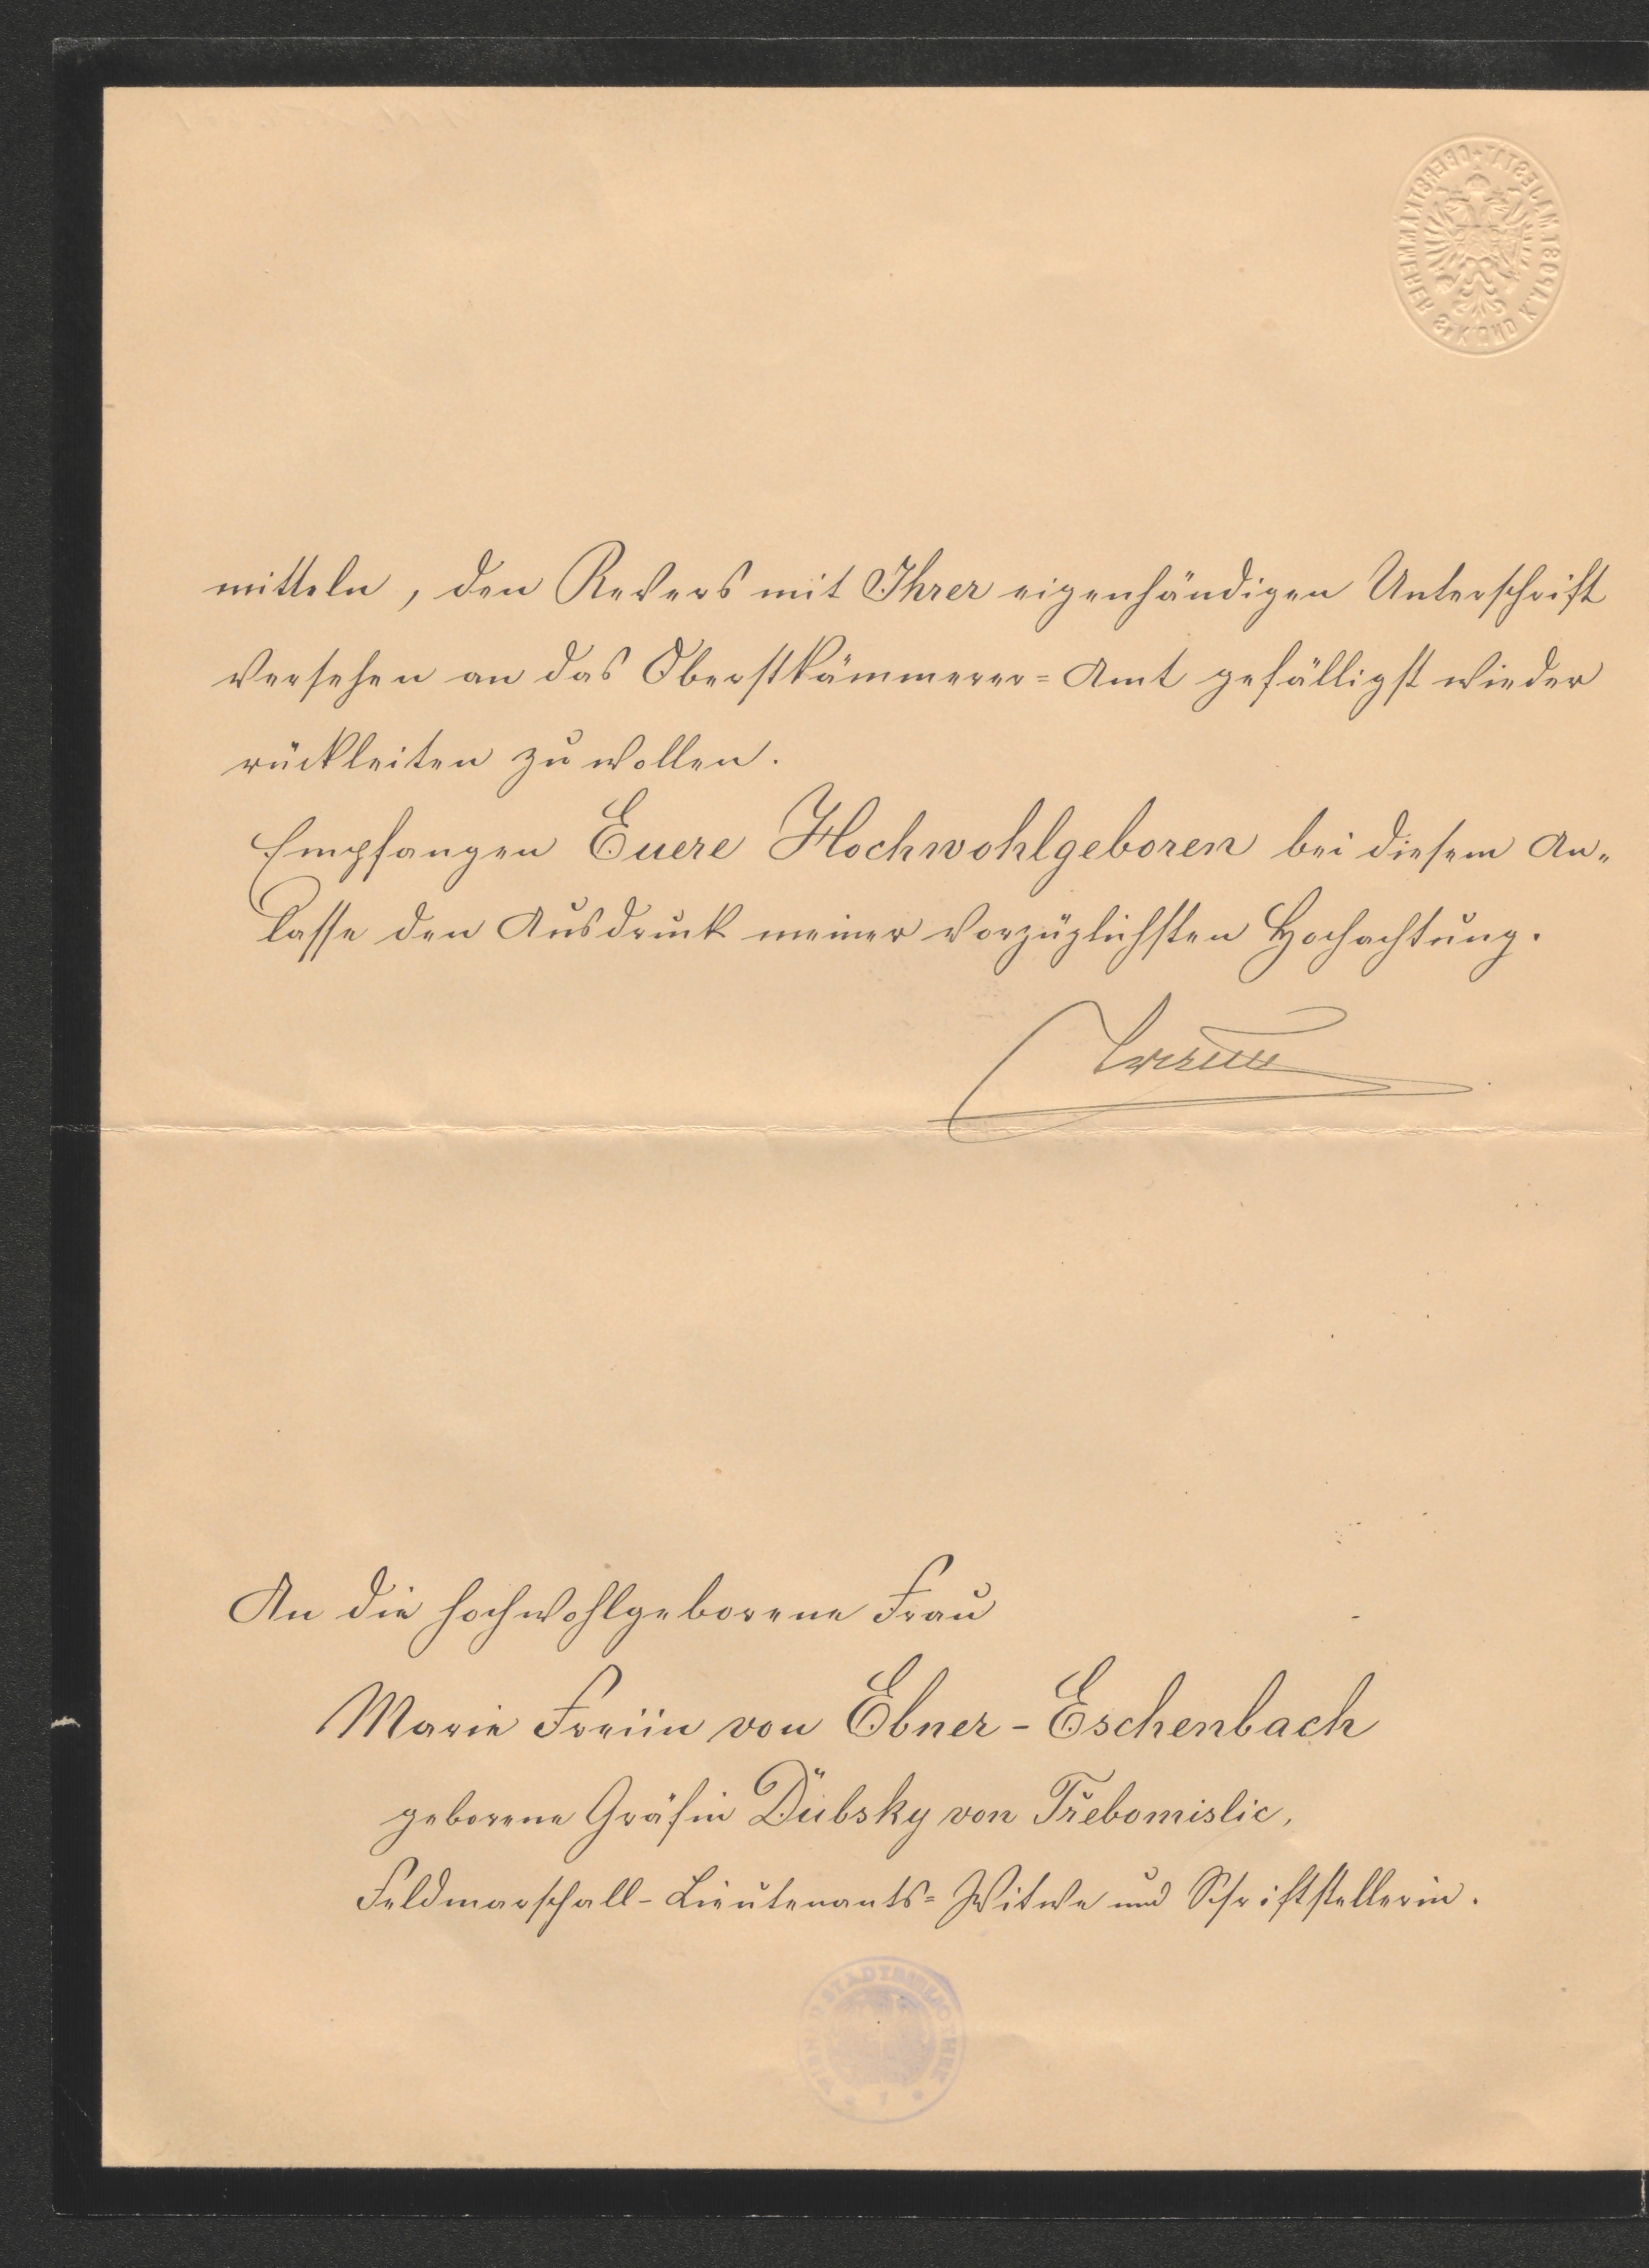 OBERSTKÄMMERER Sr K. UND K. APOST. MAJESTÄT
mitteln, den Revers mit Ihrer eigenhändigen Unterschrift
versehen an das Oberstkämmerer=Amt gefälligst wieder
rückleiten zu wollen.
Empfangen Euere Hochwohlgeboren bei diesem An„
lasse den Ausdruck meiner vorzüglichsten Hochachtung.
An die hochwohlgeborene Frau
Marie Freiin von Ebner-Eschenbach
geborene Gräfin Dŭbsky von Třebomislic,
Feldmarschall-Lieutenants=Witwe und Schriftstellerin.